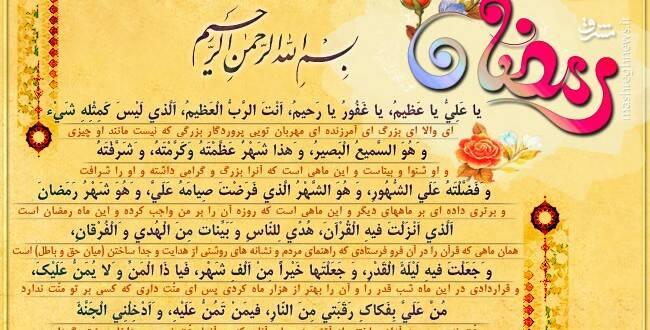 رمضان
بِسْمِ اللهِ الرَّحْمٰنِ الرَّحِیمِ
یا عَلِیُّ یا عَظیمُ، یا غَفُورُ یا رَحیمُ، اَنْتَ الرَّبُّ الْعَظیمُ، اَلَّذي لَیْسَ کَمِثْلِهِ شَيْء
ای والا ای بزرگ ای آمرزنده ای مهربان تویی پروردگار بزرگی که نیست مانند او چیزی
وَ هُوَ السَّمیعُ الْبَصیرُ، وَ هذا شَهْرٌ عَظَّمْتَهُ وَکَرَّمْتَهُ، وَ شَرَّفْتَهُ
و او شنوا و بیناست و این ماهی است که آنرا بزرگ و گرامی داشته و او را شرافت
وَ فَضَّلْتَهُ عَلَي الشُّهُورِ، وَ هُوَ الشَّهْرُ الَّذي فَرَضْتَ صِیامَهُ عَلَيَّ، وَ هُوَ شَهْرُ رَمَضانَ
و برتری داده ای بر ماههای دیگر و این ماهی است که روزه آن را بر من واجب کرده و این ماه رمضان است
اَلَّذي اَنْزَلْتَ فیهِ الْقُرْآنَ، هُدًي لِلنّاسِ وَ بَیِّناتٍ مِنَ الْهُدي وَ الْفُرْقانِ،
همان ماهی که قرآن را در آن فرو فرستاده ی که راهنمای مردم و نشانه های روشنی از هدایت و جدا ساختن (میان حق و باطل) است
وَ جَعَلْتَ فیهِ لَیْلَةَ الْقَدْرِ، وَ جَعَلْتَها خَیْراً مِنْ اَلْفِ شَهْرٍ، فَیا ذَا الْمَنِّ وَ لا یُمَنُّ عَلَیْكَ،
و قراردادی در این ماه شب قدر را و آن را بهتر از هزار ماه کردی پس ای منّت داری که کسی بر تو منّت ندارد
مُنَّ عَلَيَّ بِفَکاكِ رَقَبَتي مِنَ النّارِ، فیمَنْ تَمُنُّ عَلَیْهِ، وَ اَدْخِلْنِي الْجَنَّةَ
مشرق
mashreghnews.ir